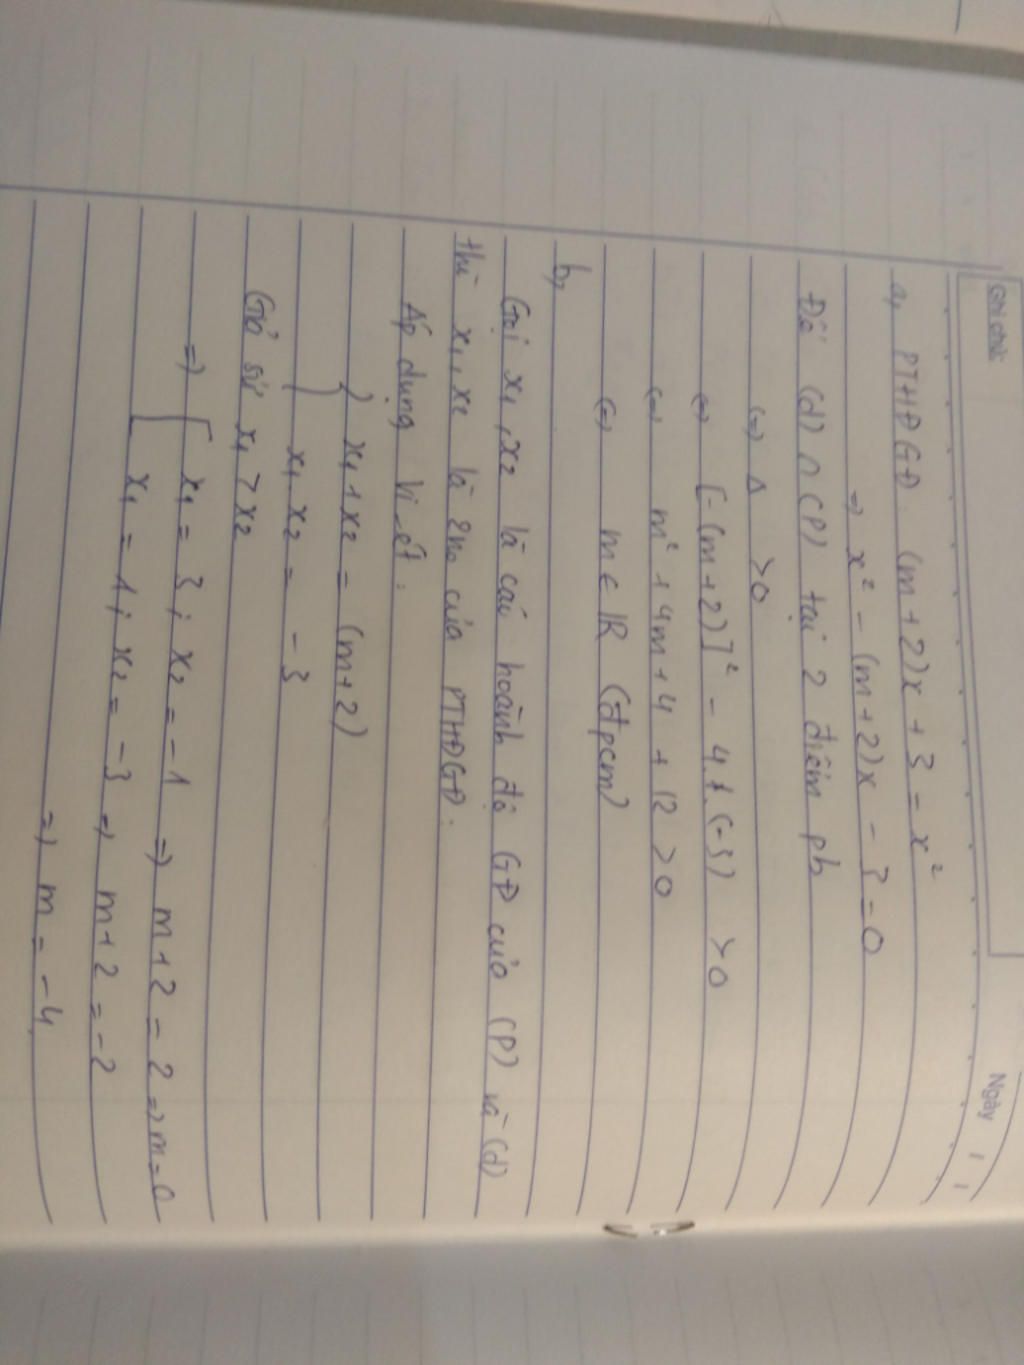 Ghi chú:
Ngày / /
a, PTHĐGĐ. (m+2)x + 3 = x²
=> x² - (m+2)x - 3 = 0
Để (d) ∩ (P) tại 2 điểm pb
(=) Δ > 0
(=) [-(m+2)]² - 4.1.(-3) > 0
(=) m² + 4m + 4 + 12 > 0
(=) m ∈ IR (đpcm)
b,
Gọi x₁, x₂ là các hoành độ GĐ của (P) và (d)
thì x₁, x₂ là 2n₀ của PTHĐGĐ.
Áp dụng Vi-ét:
{ x₁ + x₂ = (m+2)
{ x₁.x₂ = -3
Giả sử x₁ > x₂
=> [ x₁ = 3 ; x₂ = -1 => m+2 = 2 => m=0
[ x₁ = 1 ; x₂ = -3 => m+2 = -2
=> m = -4